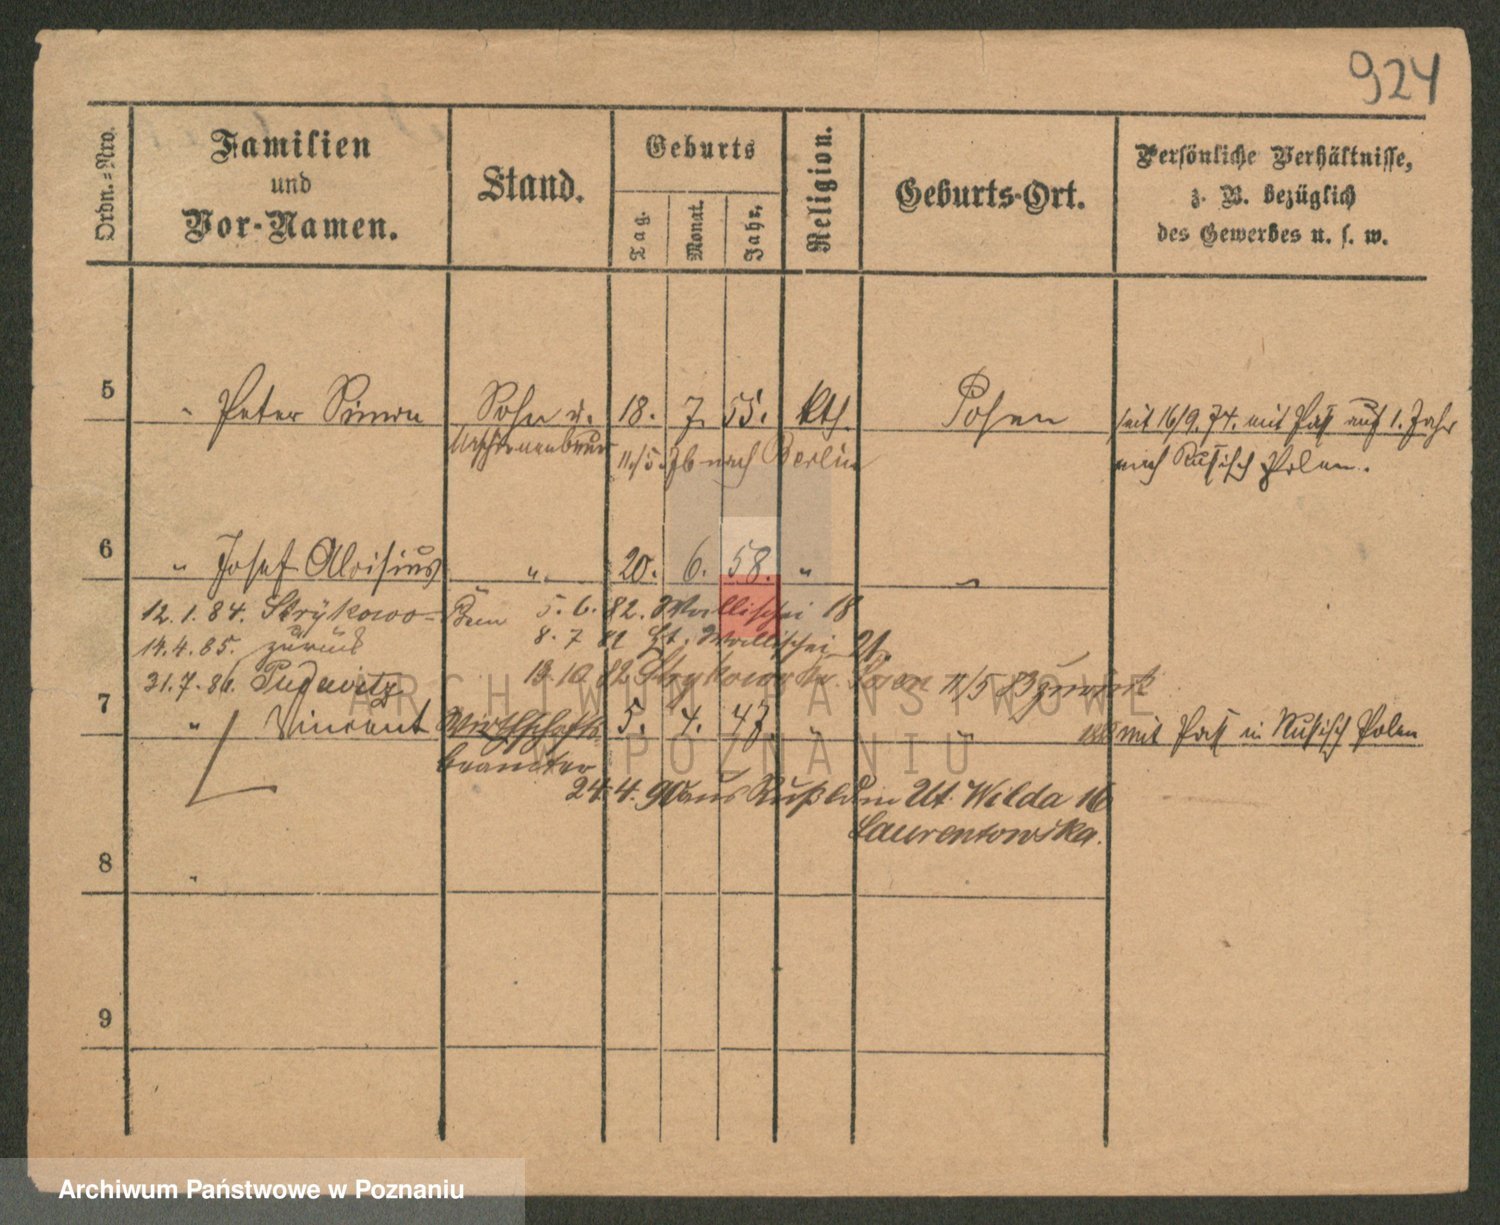 924
Ordn.-Nro.
Familien
und
Vor-Namen.
Stand.
Geburts
Tag.
Monat.
Jahr.
Religion.
Geburts-Ort.
Persönliche Verhältnisse,
z. B. bezüglich
des Gewerbes u. s. w.
5
" Peter Simon Sohn d. 18. 7. 55. kth. Posen seit 16/9. 74. mit Paß auf 1. Jahr
Maschinenbauer 11/5. 76 nach Berlin nach Russisch Polen.
6
" Josef Aloisius " 20. 6. 58. " "
12. 1. 84. Strykowo- 5. 6. 82. Wallischei 18
14. 4. 85. zurück 8. 7 82 Wallischei 21.
13. 10. 82 Strykowo Kr. Posen 11/5 83 zurück
31. 7. 86. Pudewitz
7
" Vincent Wirthschafts- 5. 4. 47. " " mit Paß in Russisch Polen
beamter
24. 4. 90 aus Rußld in Ut. Wilda 16
Laurentowska.
8
"
9
ARCHIWUM PAŃSTWOWE
W POZNANIU
Archiwum Państwowe w Poznaniu